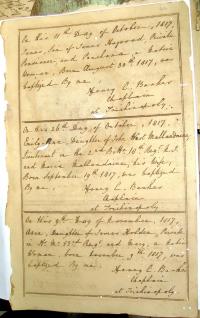 On this 11th Day of October, 1817,
Jonas, Son of Jonas Haywood Private
Pensioner, and Panchara, a Native
Woman, Born August 30th 1817, was
baptized By me.
Henry C. Banker
Chaplain
at Trichinopoly
On this 26th Day of October, 1817,
Daughter of John
Lieutenant in the 2nd B. 10th Regt. N.I
and Maria his wife,
Born September 19th 1817, was baptized
By me,
Henry C. Banker
Chaplain
at Trichinopoly
On this 9th Day of November, 1817,
Daughter of Jonas Holden, Private
in H. M. 53rd Regt. and Mary, a Native
Woman, born November 3rd 1817, was
baptized By me,
Henry C. Banker
Chaplain
at Trichinopoly